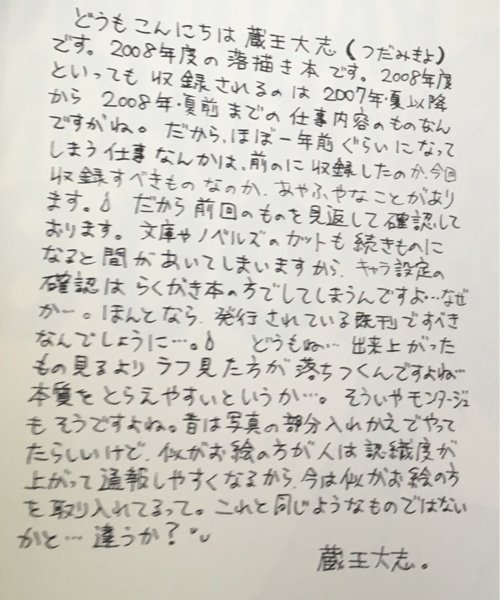 どうもこんにちは 蔵王大志(つだみきよ)
です。2008年度の落描き本です。2008年度
といっても 収録されるのは 2007年・夏以降
から 2008年・夏前 までの 仕事内容のものなん
ですがね。だから、ほぼ一年前ぐらいになって
しまう仕事なんかは、前のに収録したのか、今回
収録すべきものなのか、あやふやなことがあり
ます。だから前回のものを見返して確認して
おります。文庫やノベルズのカットも続きものに
なると間があいてしまいますから、キャラ設定の
確認は らくがき本の方でしてしまうんですよ…なぜ
かー。ほんとなら、発行されている既刊ですべき
なんでしょうに…。 どうもね… 出来上がった
もの見るよりラフ見た方が落ちつくんですよね…
本質をとらえやすいというか…。そういやモンタージュ
もそうですよね。昔は写真の部分入れかえでやって
たらしいけど、似がお絵の方が人は認織度が
上がって通報しやすくなるから、今は似がお絵の方
を取り入れてるって。これと同じようなものではない
かと…違うか?
蔵王大志。